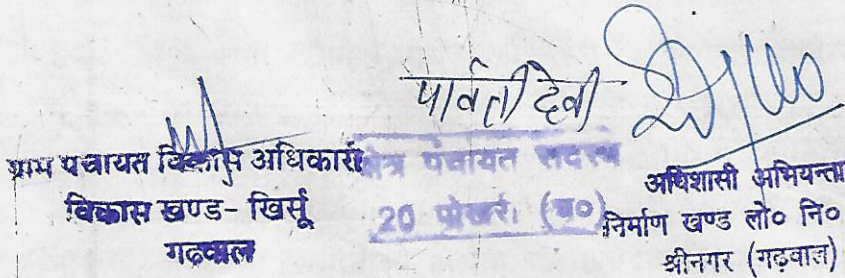 पार्वती देवी
ग्राम पंचायत विकास अधिकारी
विकास खण्ड- खिर्सू
गढवाल
क्षेत्र पंचायत सदस्य
20 पोखरी (ब०)
अधिशासी अभियन्ता
निर्माण खण्ड लो० नि०
श्रीनगर (गढवाल)